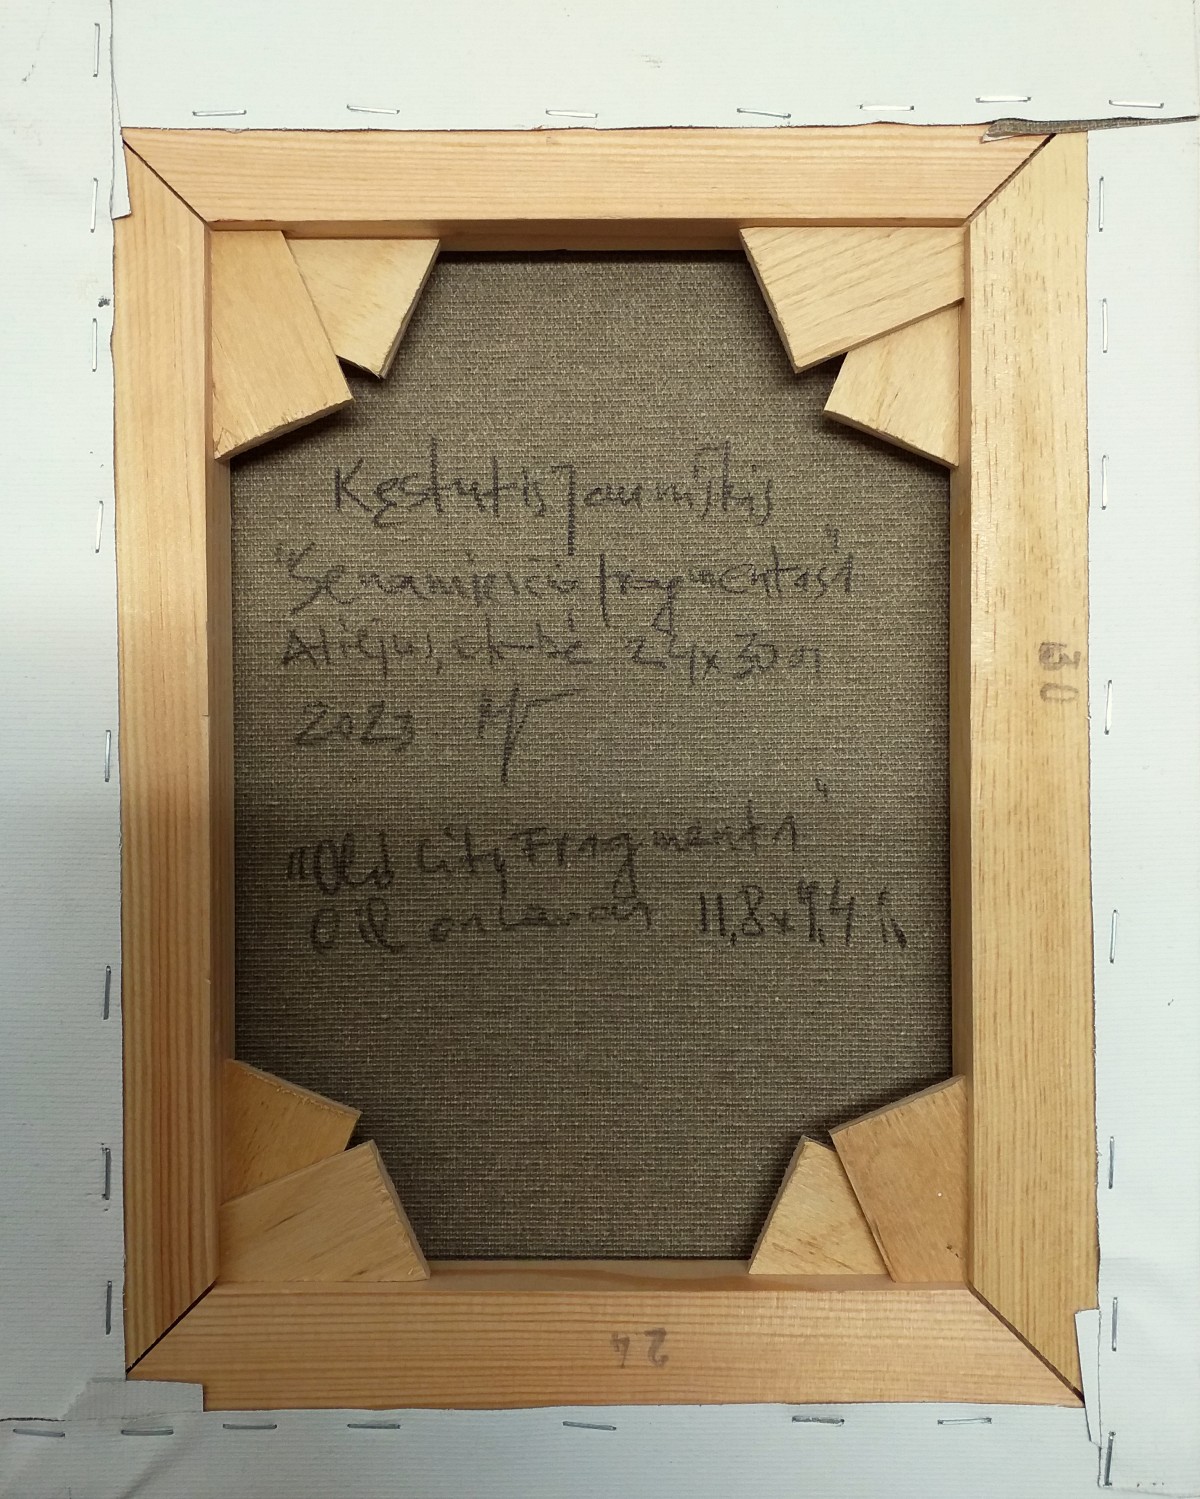 Kęstutis Jauniškis
"Senamiesčio fragmentas 1"
Aliejus, drobė 24x30 cm
2023
"Old City Fragment 1"
Oil on canvas 11,8x9,4 in
30
24